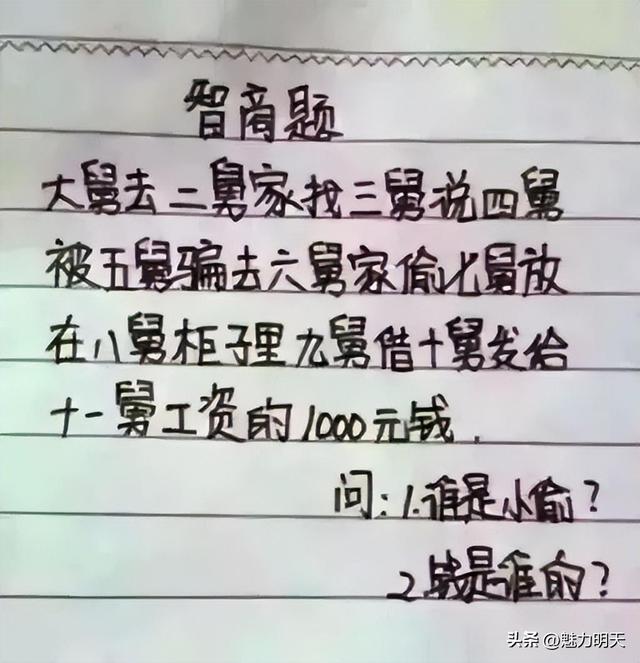 智商题
大舅去二舅家找三舅说四舅
被五舅骗去六舅家偷七舅放
在八舅柜子里九舅借十舅发给
十一舅工资的1000元钱.
问:1.谁是小偷?
2.钱是谁的?
头条 @魅力明天